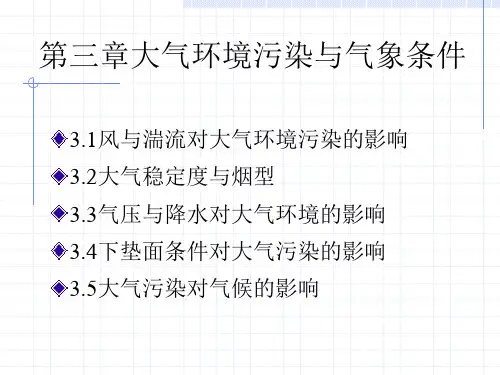 第三章大气环境污染与气象条件
3.1风与湍流对大气环境污染的影响
3.2大气稳定度与烟型
3.3气压与降水对大气环境的影响
3.4下垫面条件对大气污染的影响
3.5大气污染对气候的影响